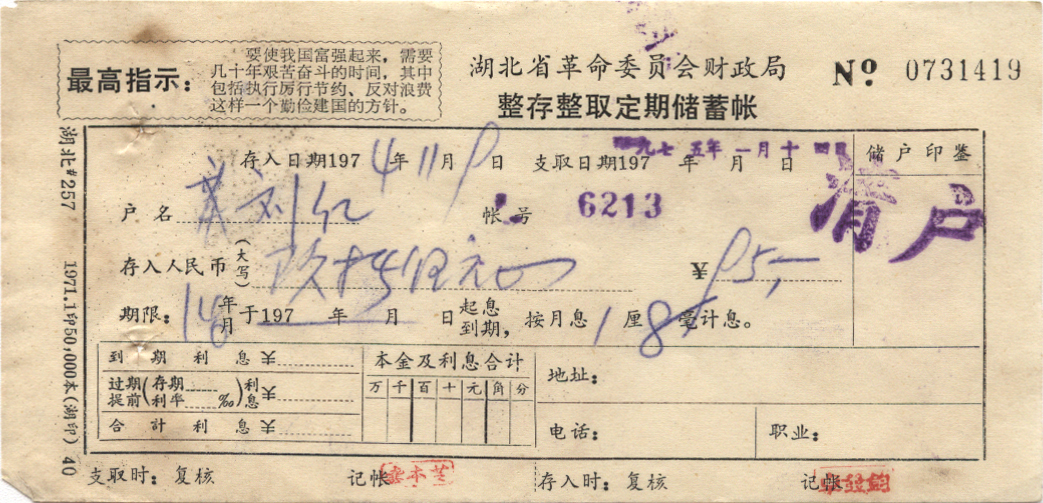 最高指示：
要使我国富强起来，需要
几十年艰苦奋斗的时间，其中
包括执行厉行节约、反对浪费
这样一个勤俭建国的方针。
湖北省革命委员会财政局
整存整取定期储蓄帐
Nº 0731419
湖北#257 1971.1印50,000本(湖印) 40
存入日期1974年11月9日 支取日期197 年 月 日
一九七五年一月十四日
储户印鉴
户名 刘仁
帐号 6213
清户
存入人民币(大写) 玖拾伍元 ¥95,—
期限： 年月于197 年 月 日起息到期，按月息1厘8毫计息。
到期利息￥
过期提前(存期利率 ‰)利息￥
合计利息￥
本金及利息合计
万 千 百 十 元 角 分
地址：
电话：
职业：
支取时：复核 记帐 存入时：复核 记帐